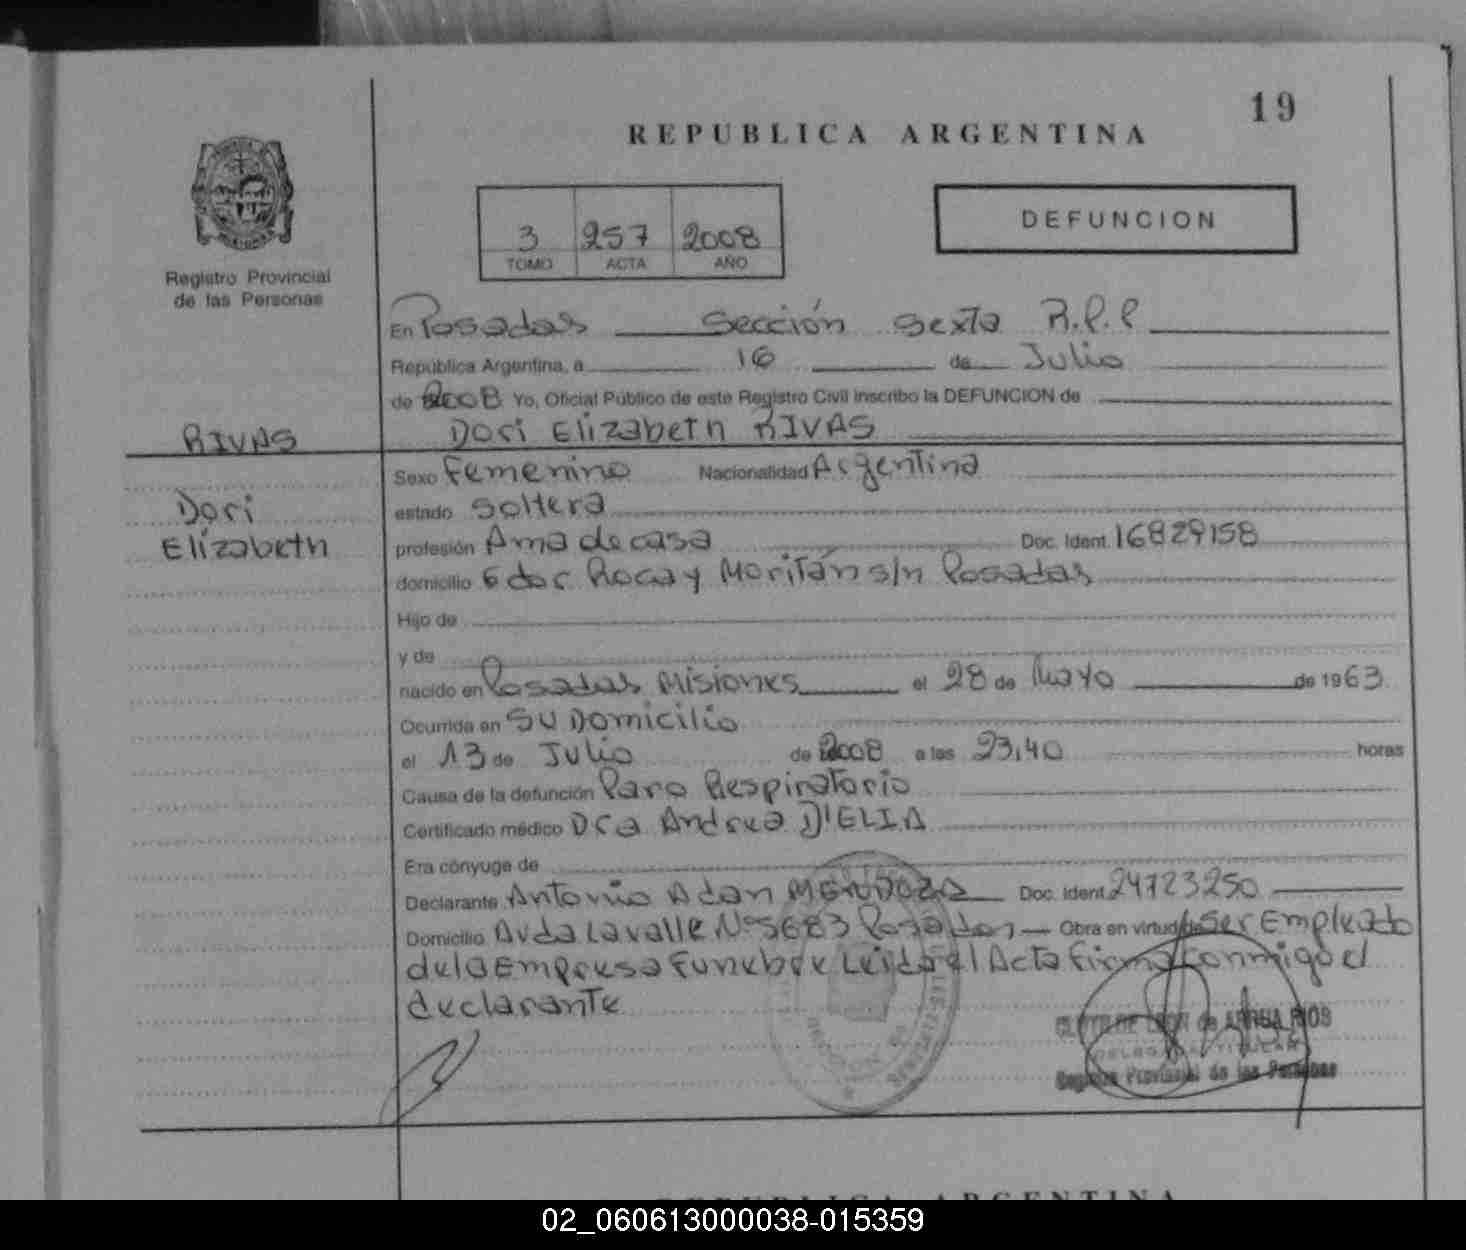 19
REPUBLICA ARGENTINA
3 257 2008
TOMO ACTA AÑO
DEFUNCION
Registro Provincial
de las Personas
En Posadas Sección Sexta R.P.P
República Argentina, a 16 de Julio
de 2008 Yo, Oficial Público de este Registro Civil inscribo la DEFUNCION de
RIVAS
Dori Elizabeth RIVAS
Dori
Elizabeth
Sexo Femenino Nacionalidad Argentina
estado Soltera
profesión Ama de casa Doc. Ident. 16829158
domicilio Roca y Moritán s/n Posadas
Hijo de
y de
nacido en Posadas Misiones el 28 de Mayo de 1963
Ocurrida en SU Domicilio
el 13 de Julio de 2008 a las 23,40 horas
Causa de la defunción Paro Respiratorio
Certificado médico Dra Andrea D'ELIA
Era cónyuge de
Declarante Antonio Adan MENDOZA Doc. Ident. 24723250
Domicilio Avda Lavalle Nº 5683 Posadas Obra en virtud de Ser Empleado
de la Empresa Funebre Leida el Acta Firma Conmigo el
declarante
DELEGADA TITULAR
Registro Provincial de las Personas
REPUBLICA ARGENTINA
02_060613000038-015359